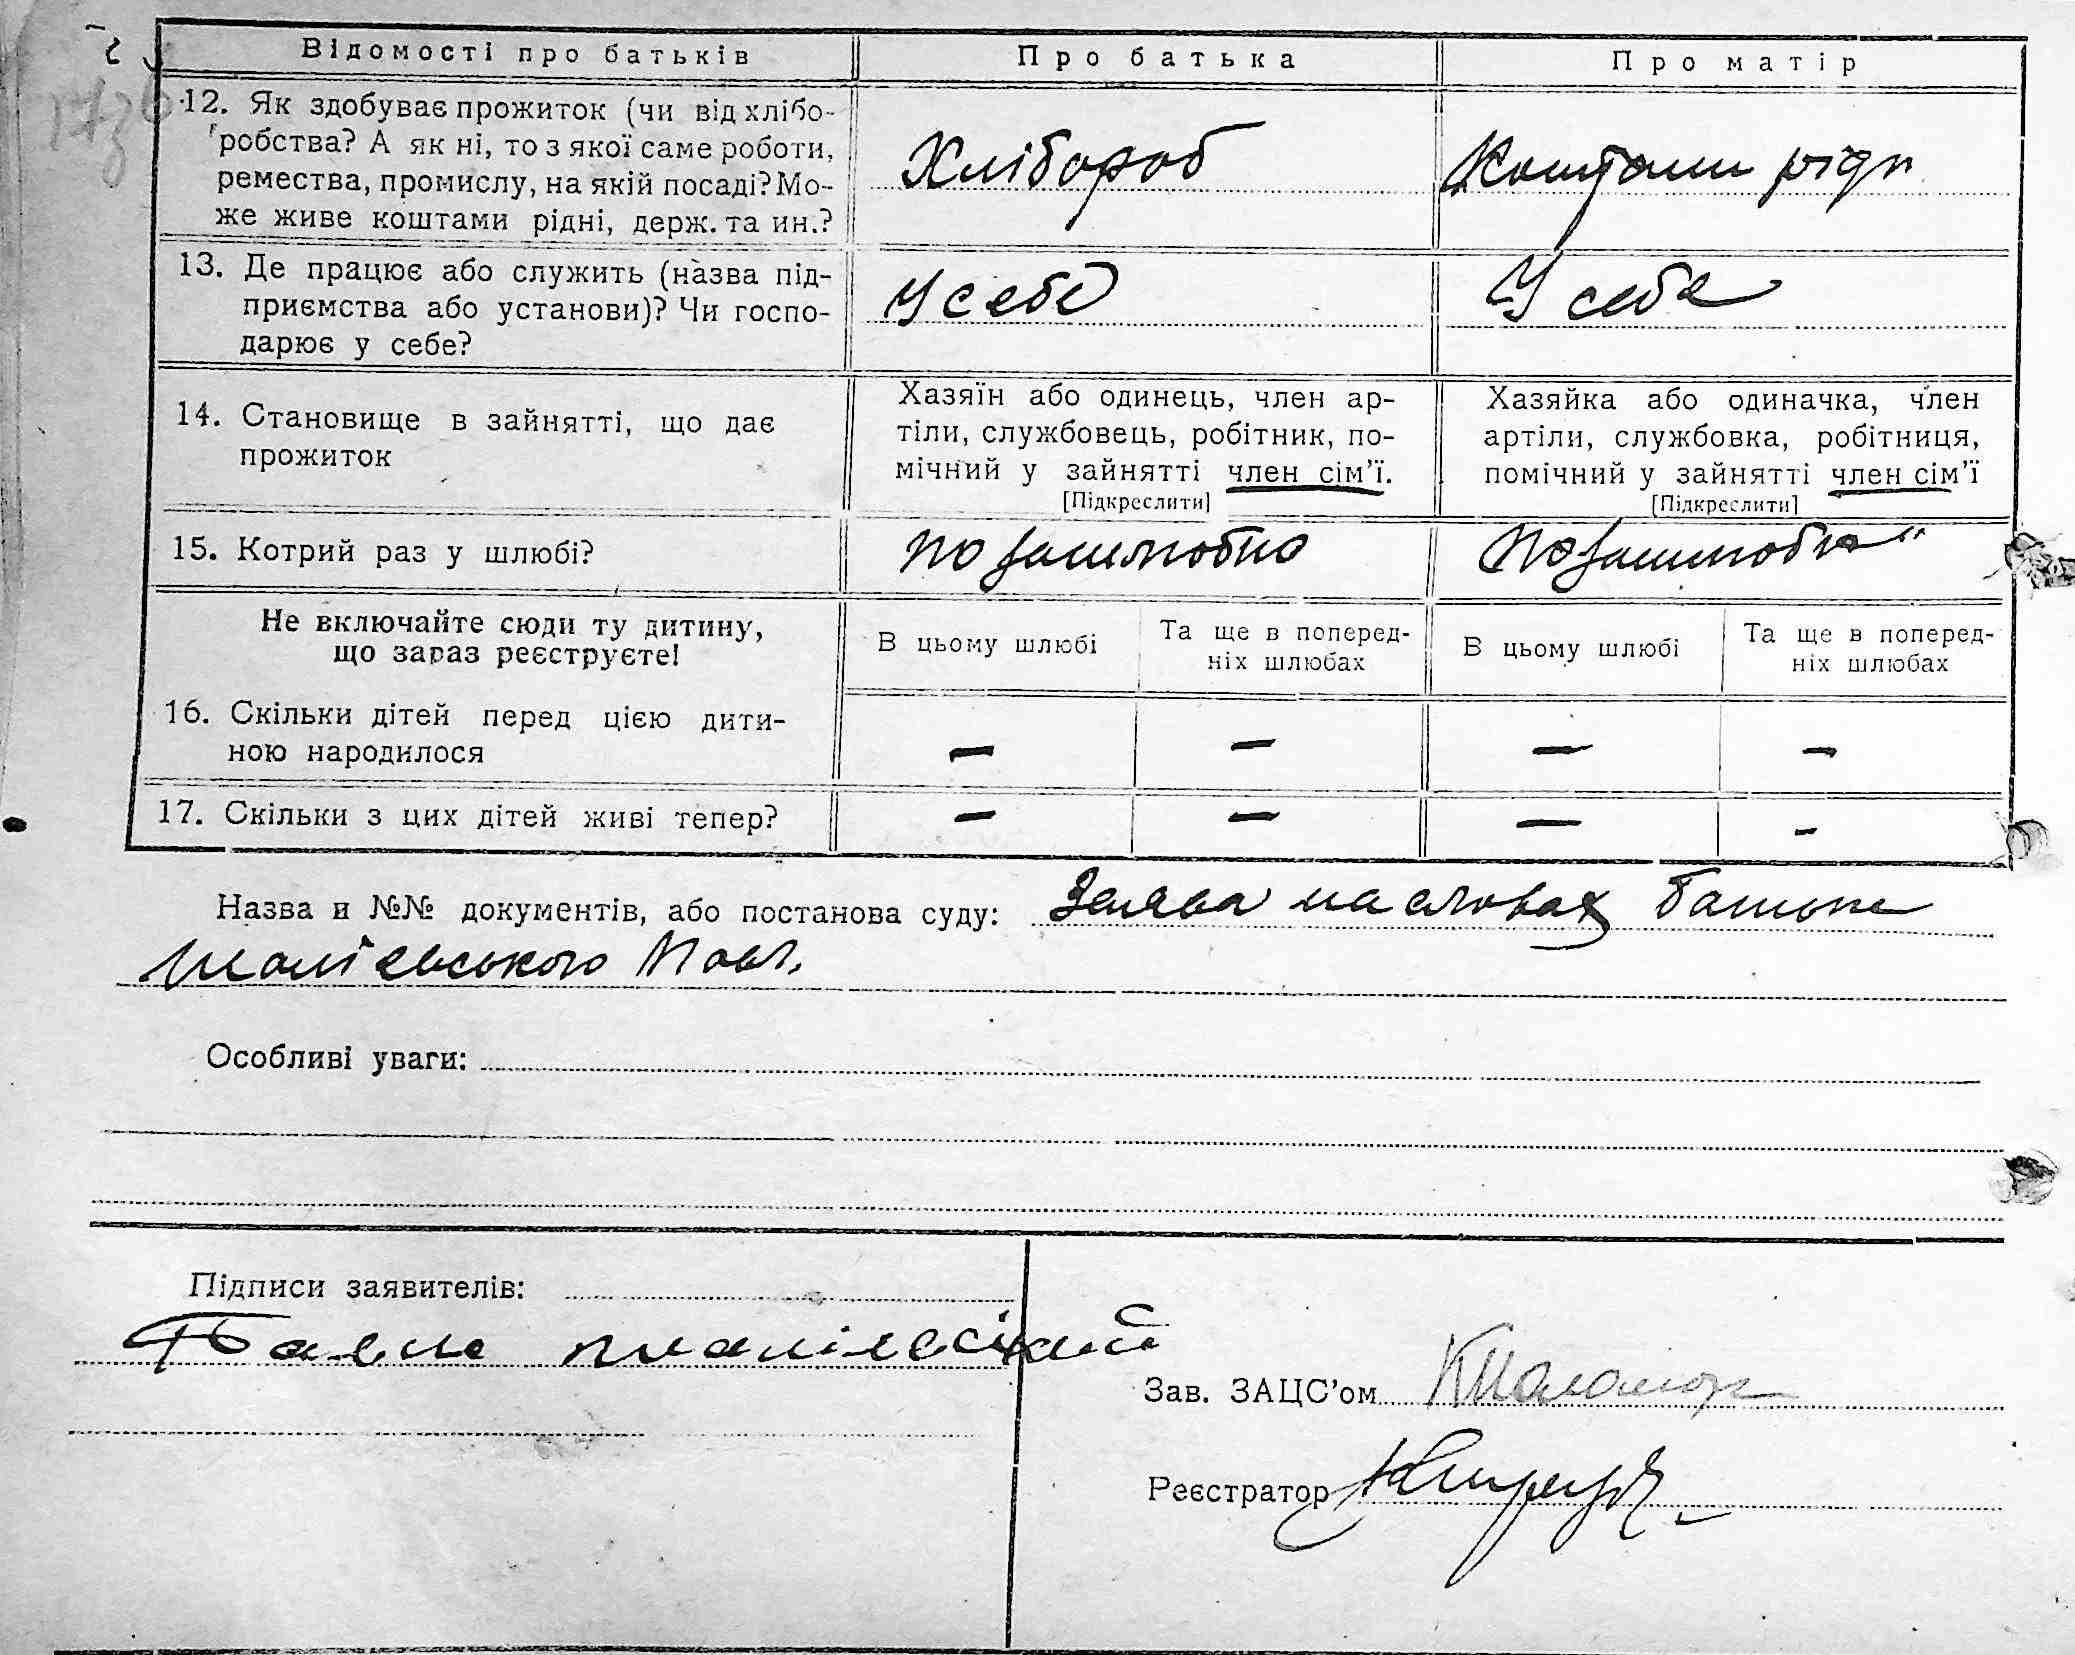 Відомості про батьків Про батька Про матір
12. Як здобуває прожиток (чи від хлібо-
робства? А як ні, то з якої саме роботи,
ремества, промислу, на якій посаді? Мо-
же живе коштами рідні, держ. та ин.?
Хлібороб Коштами рідн
13. Де працює або служить (назва під-
приємства або установи)? Чи госпо-
дарює у себе?
У себе У себе
14. Становище в зайнятті, що дає
прожиток
Хазяїн або одинець, член ар-
тіли, службовець, робітник, по-
мічний у зайнятті член сім'ї.
[Підкреслити]
Хазяйка або одиначка, член
артіли, службовка, робітниця,
помічний у зайнятті член сім'ї
[Підкреслити]
15. Котрий раз у шлюбі? позашлюбно позашлюбна
Не включайте сюди ту дитину,
що зараз реєструєте!
В цьому шлюбі
Та ще в поперед-
ніх шлюбах
В цьому шлюбі
Та ще в поперед-
ніх шлюбах
16. Скільки дітей перед цією дити-
ною народилося
— — — —
17. Скільки з цих дітей живі тепер? — — — -
Назва и №№ документів, або постанова суду: Заява на словах батька
Павл.
Особливі уваги:
Підписи заявителів:
Павло
Зав. ЗАЦС'ом
Реєстратор